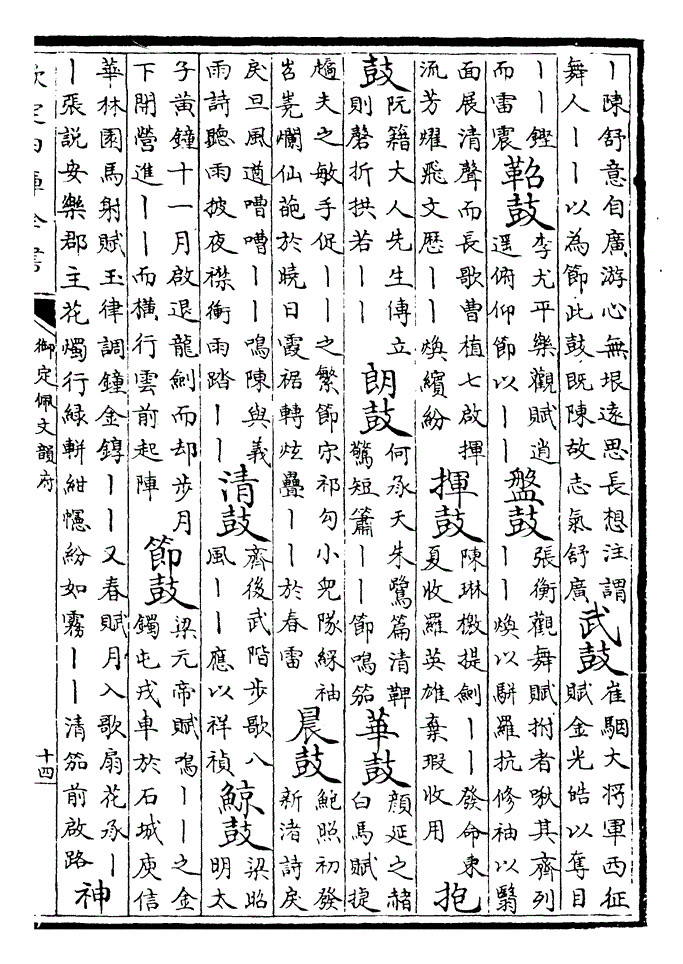 丨陳舒意自廣游心無垠遠思長想注謂
舞人丨丨以為節此鼓既陳故志氣舒廣
武鼓
崔駰大将軍西征
賦金光皓以奪目
丨丨鏗
而雷震
鞀鼓
李尤平樂觀賦逍
遥俯仰節以丨丨
盤鼓
張衡觀舞賦拊者啾其齊列
丨丨煥以駢羅抗修袖以翳
面展清聲而長歌曹植七啟揮
流芳燿飛文歷丨丨煥繽紛
揮鼓
陳琳檄提劍丨丨發命東
夏收羅英雄棄瑕收用
抱
鼓
阮籍大人先生傳立
則磬折拱若丨丨
朗鼓
何承天朱鷺篇清鞞
驚短簫丨丨節鳴笳
華鼓
顔延之赭
白馬賦捷
趫夫之敏手促丨丨之繁節宋祁勾小兒隊綵袖
岧嶤爛仙葩於曉日霞裾轉炫疊丨丨於春雷
晨鼓
鮑照初發
新渚詩戾
戾旦風遒嘈嘈丨丨鳴陳與義
雨詩聽雨披夜襟衝雨踏丨丨
清鼓
齊後武階步歌八
風丨丨應以祥禎
鯨鼓
梁昭
明太
子黃鐘十一月啟退龍劍而却步月
下開營進丨丨而橫行雲前起陣
節鼓
梁元帝賦鳴丨丨之金
鐲屯戎車於石城庾信
華林園馬射賦玉律調鐘金錞丨丨又春賦月入歌扇花承丨
丨張説安樂郡主花燭行緑軿紺幰紛如霧丨丨清笳前啟路
神
欽定四庫全書
御定佩文韻府
十四